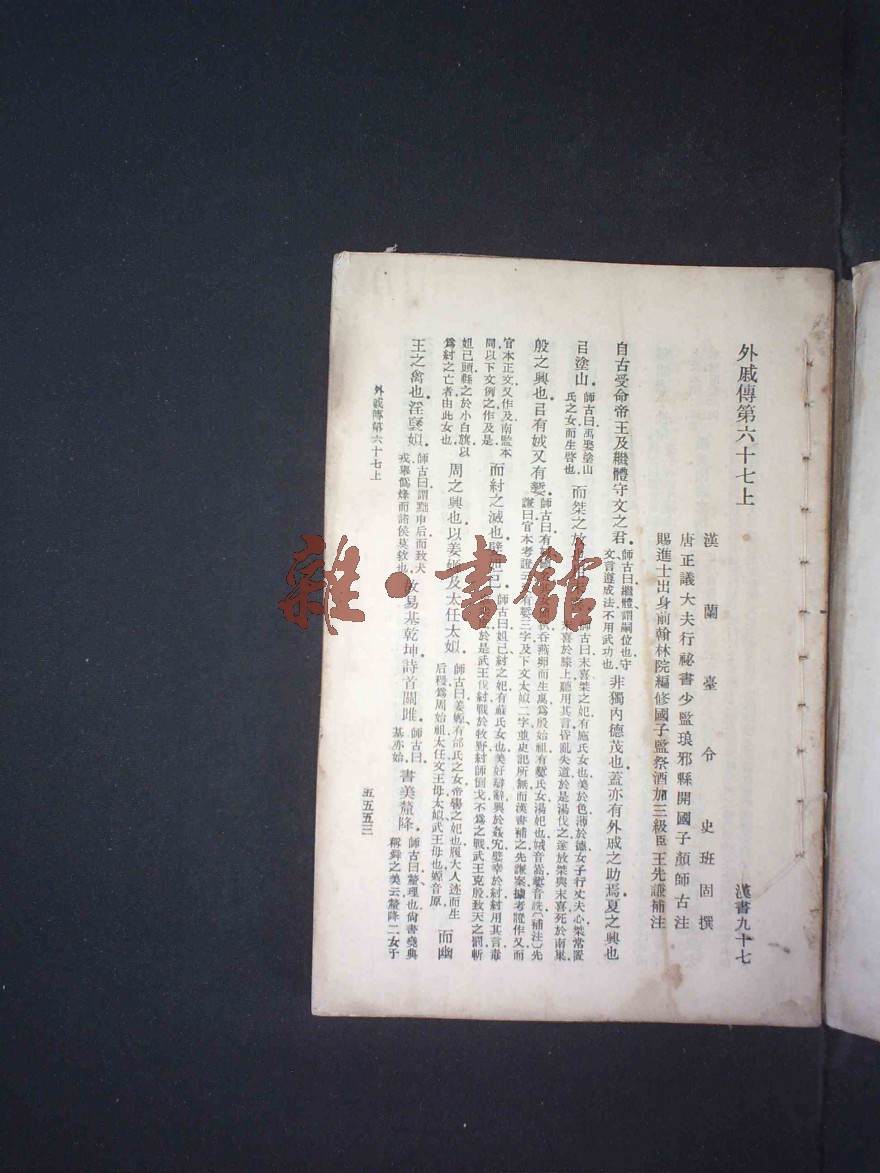 外戚傳第六十七上
漢書九十七
漢蘭臺令史班固撰
唐正議大夫行祕書少監琅邪縣開國子顏師古注
賜進士出身前翰林院編修國子監祭酒加三級臣王先謙補注
自古受命帝王及繼體守文之君師古曰繼體謂嗣位也守文言遵成法不用武功也非獨內德茂也蓋亦有外戚之助焉夏之興也
㠯塗山師古曰禹娶塗山氏之女而生啓也而桀之放師古曰末喜桀之妃有施氏女也美於色薄於德女子行丈夫心桀常置末喜於膝上聽用其言昏亂失道於是湯伐之遂放桀與末喜死於南巢
殷之興也㠯有娀又有㜪師古曰有娀吞燕卵而生禼爲殷始祖有㜪氏女湯妃也娀音嵩㜪音詵〔補注〕先謙曰官本考證云有㜪三字及下文太姒二字並史記所無而漢書補之先謙案據考證作又而
官本正文又作及南監本同以下文例之作及是而紂之滅也嬖妲己師古曰妲己紂之妃有蘇氏女也美好辯辭興於姦宄嬖幸於紂紂用其言毒於是武王伐紂戰於牧野紂師倒戈不爲之戰武王克殷致天之罰斬
妲己頭縣之於小白旗以爲紂之亡者由此女也周之興也以姜嫄及太任太姒師古曰姜嫄有邰氏之女帝嚳之妃也履大人迹而生后稷爲周始祖太任文王母太姒武王母也嫄音原而幽
王之禽也淫襃姒師古曰謂黜申后而致犬戎舉僞烽而諸侯莫救也故易基乾坤詩首關雎師古曰基亦始書美釐降師古曰釐理也尙書堯典稱舜之美云釐降二女于
外戚傳第六十七上
五五五三
雜·書館